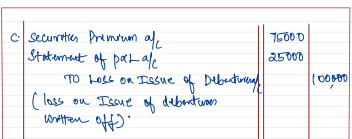 C. Securities Premium a/c 75000
Statement of P&L a/c 25000
TO Loss on Issue of Debentures/c 100000
(loss on Issue of debentures
written off).